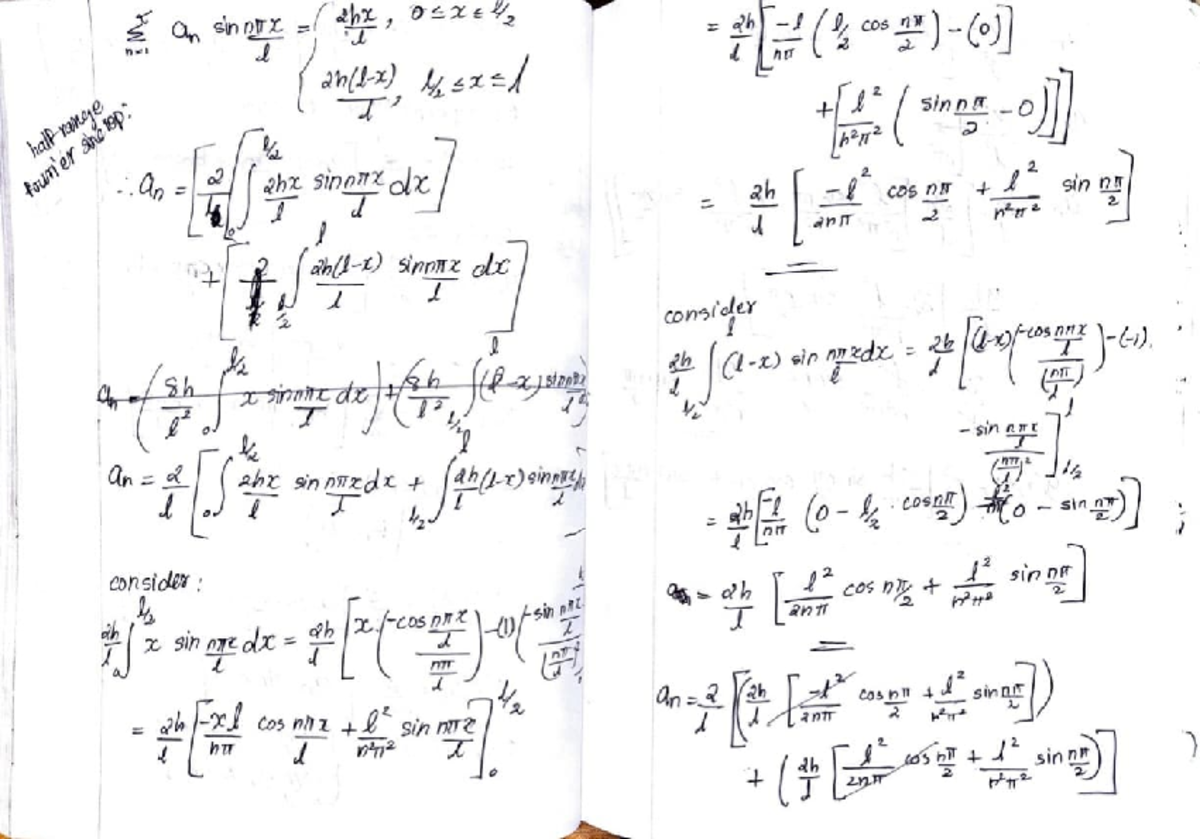 ∑_{n=1}^{∞} a_n sin nπx/l = { 2hx/l, 0≤x≤l/2
2h(l-x)/l, l/2≤x≤l
half-range
fourier sine rep:
∴ a_n = [2/l ∫_0^{l/2} 2hx/l sin nπx/l dx]
+ [2/l ∫_{l/2}^{l} 2h(l-x)/l sin nπx/l dx]
a_n = (8h/l² ∫_0^{l/2} x sin nπx/l dx) + (8h/l² ∫_{l/2}^{l} (l-x) sin nπx/l
a_n = 2/l [∫_0^{l/2} 2hx/l sin nπx/l dx + ∫_{l/2}^{l} 2h/l (l-x) sin nπx/l
consider:
2h/l ∫_0^{l/2} x sin nπx/l dx = 2h/l [x.(-cos nπx/l / nπ/l) - (1) (-sin nπx/l / (nπ/l)²
= 2h/l [-xl/nπ cos nπx/l + l²/n²π² sin nπx/l]_0^{l/2}
= 2h/l [-l/nπ (l/2 cos nπ/2) - (0)]
+ [l²/n²π² (sin nπ/2 - 0)]]
= 2h/l [-l²/2nπ cos nπ/2 + l²/n²π² sin nπ/2]
consider
2h/l ∫_{l/2}^{l} (l-x) sin nπx/l dx = 2h/l [(l-x)(-cos nπx/l / (nπ/l)) - (-1).
-sin nπx/l / (nπ/l)²]_{l/2}^{l}
= 2h/l [-l/nπ (0 - l/2 . cos nπ/2) - l²/n²π² (0 - sin nπ/2)]
= 2h/l [l²/2nπ cos nπ/2 + l²/n²π² sin nπ/2]
a_n = 2/l [(2h/l [-l²/2nπ cos nπ/2 + l²/n²π² sin nπ/2])
+ (2h/l [l²/2nπ cos nπ/2 + l²/n²π² sin nπ/2)]]